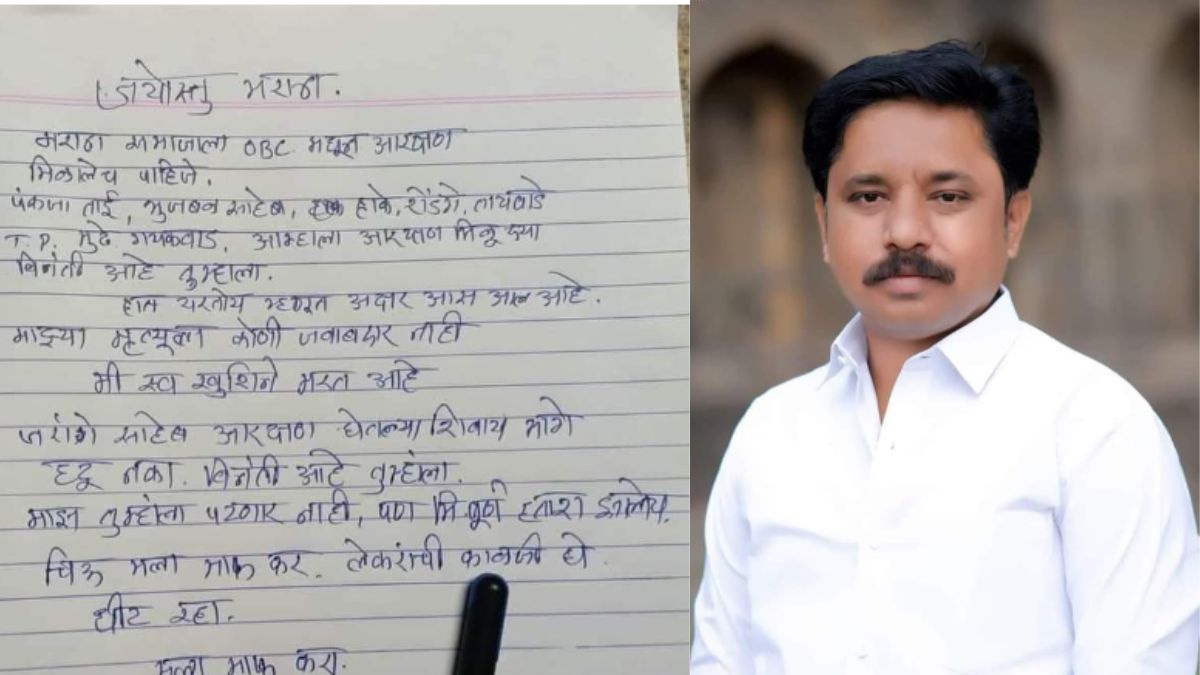 जयोस्तु मराठा.
मराठा समाजाला OBC मधून आरक्षण
मिळालेच पाहिजे.
पंकजा ताई, भुजबळ साहेब, हाके, शेंडगे, तायवाडे
T.P. मुंढे गायकवाड, आम्हाला आरक्षण मिळू द्या
विनंती आहे तुम्हाला.
हात थरतोय म्हणून अक्षर आस आल आहे.
माझ्या मृत्यूला कोणी जवाबदार नाही
मी स्व खुशिने मरत आहे
जरांगे साहेब आरक्षण घेतल्याशिवाय मागे
हटू नका. विनंती आहे तुम्हाला.
माझ तुम्होला पटणार नाही, पण मि पूर्ण हताश झालोय.
चिऊ मला माफ कर. लेकरांची काळजी घे.
धीट रहा.
मला माफ करा.